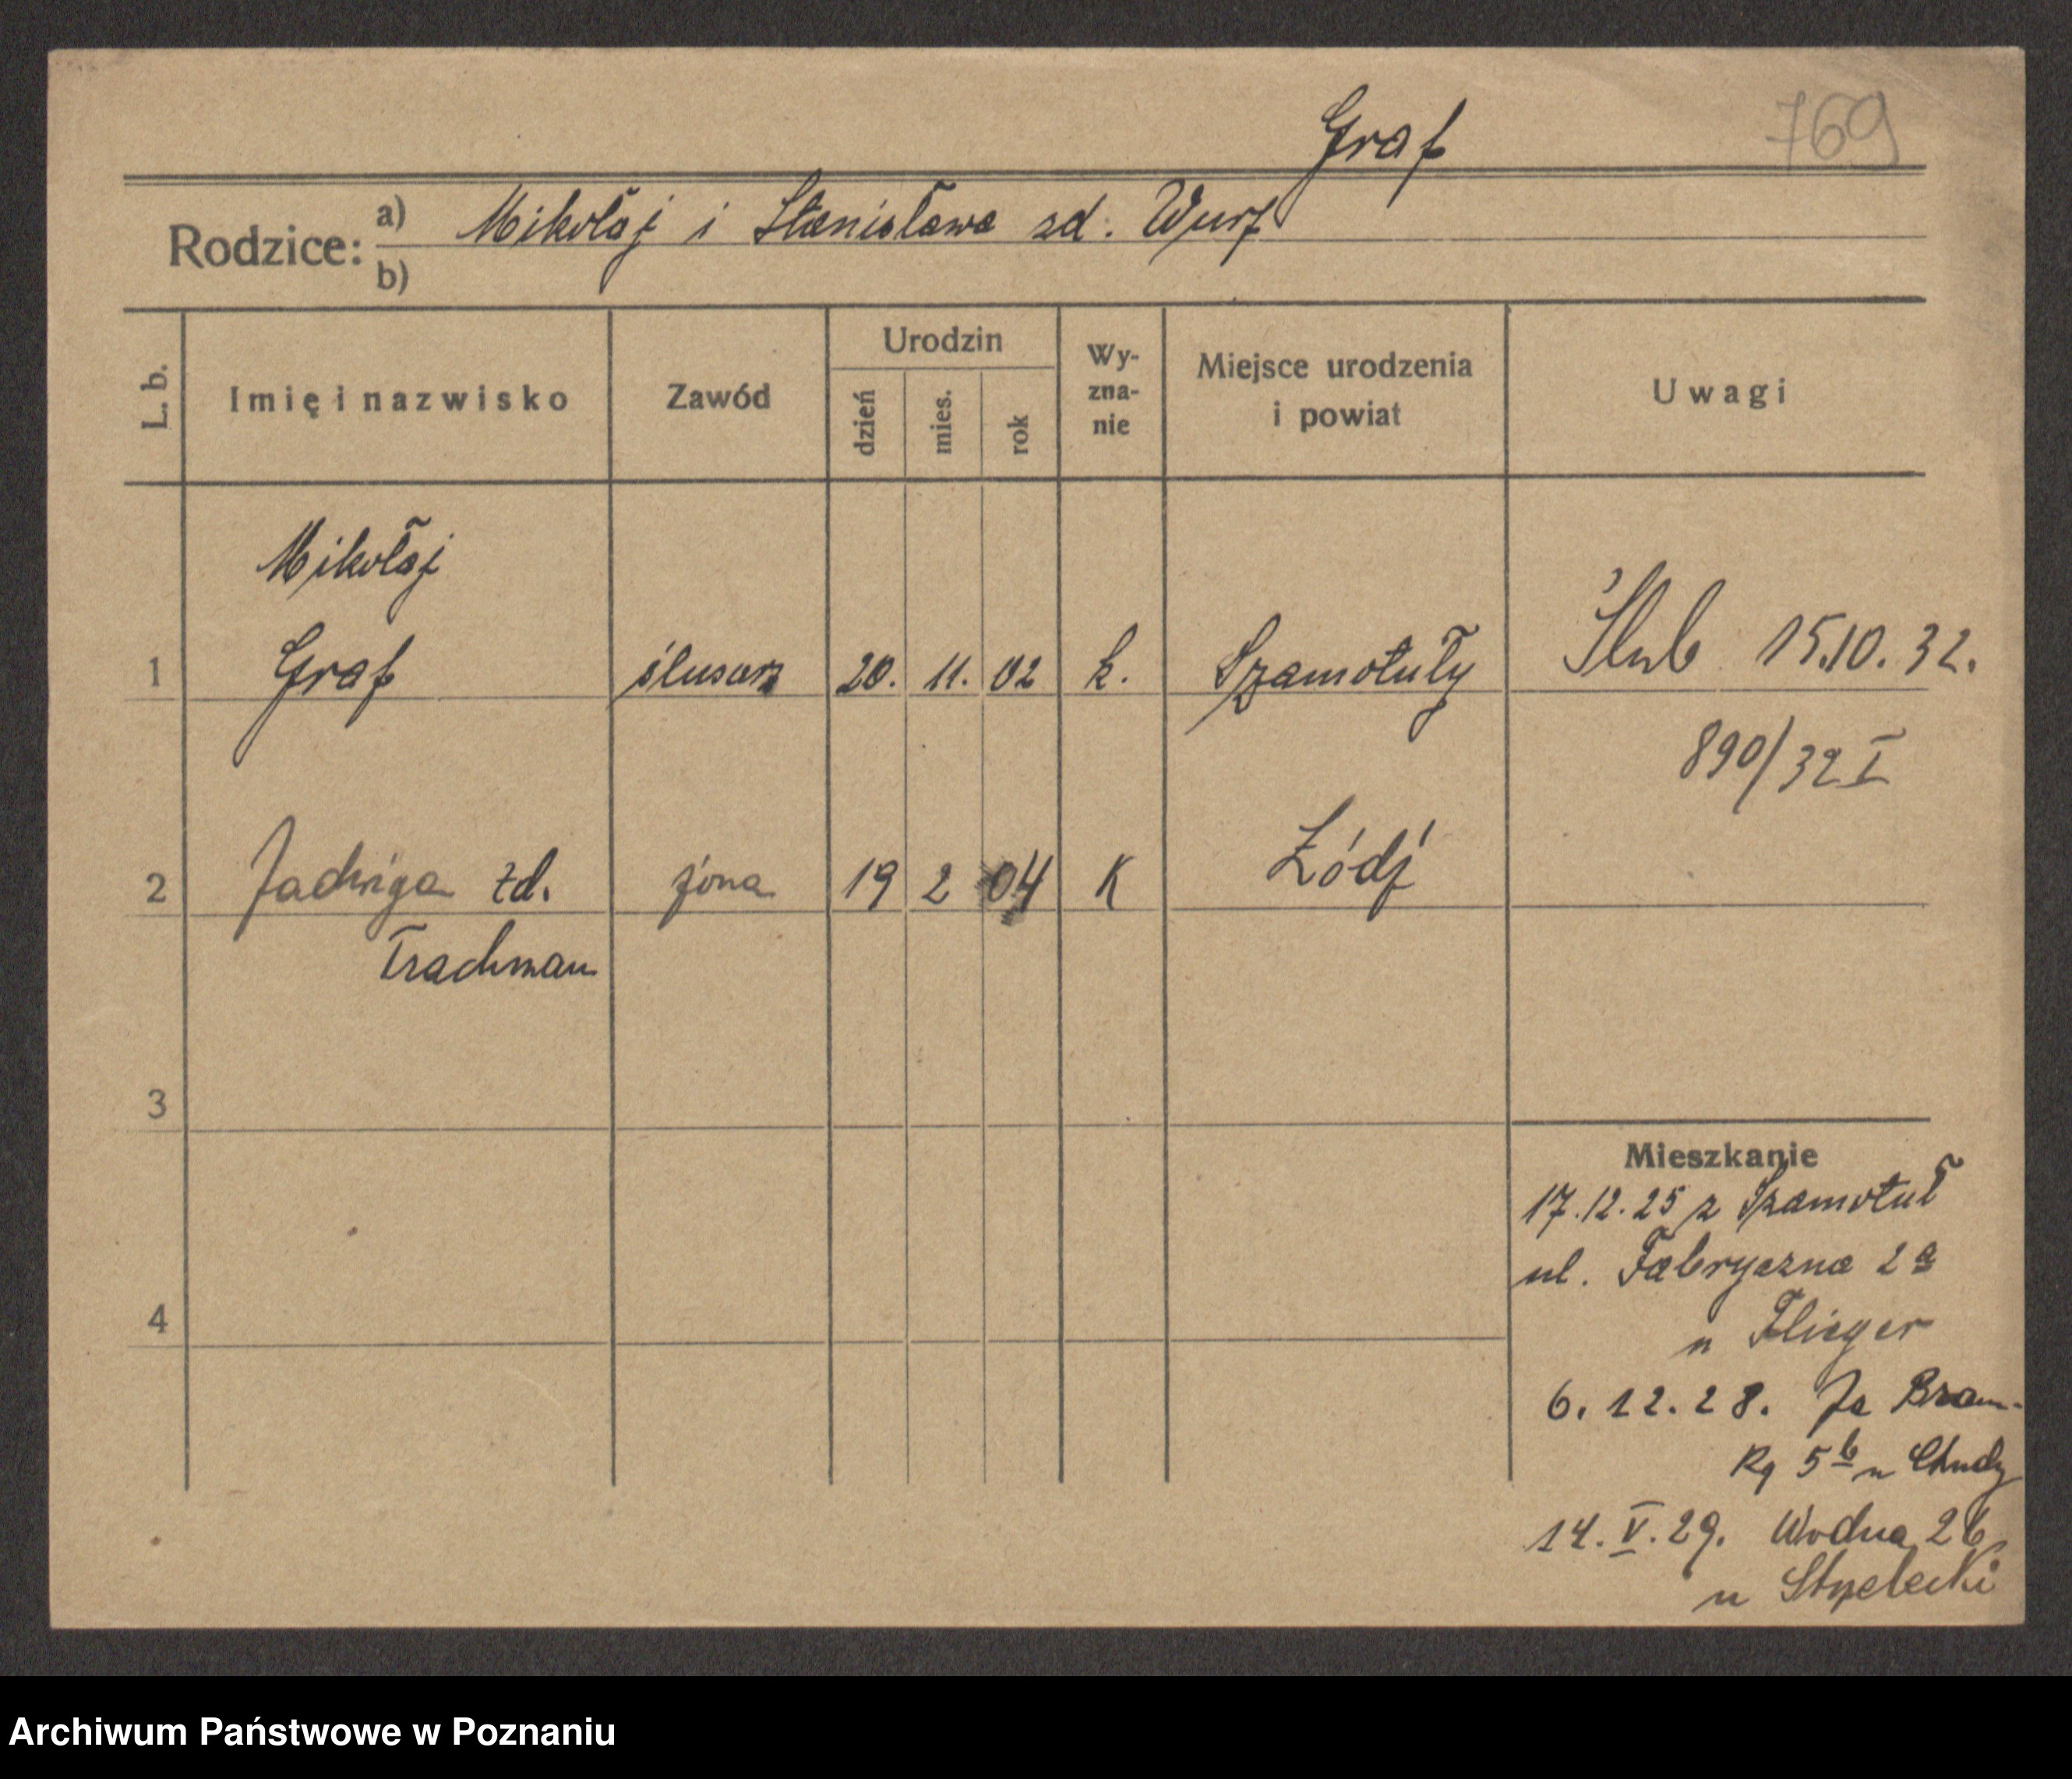 Graf
769
Rodzice: a) Mikołaj i Stanisława zd. Wurf
b)
L. b.
Imię i nazwisko
Zawód
Urodzin
dzień
mies.
rok
Wy-
zna-
nie
Miejsce urodzenia
i powiat
Uwagi
Mikołaj
1 Graf ślusarz 20. 11. 02 k. Szamotuły Ślub 15.10.32.
890/32 I
2 Jadwiga zd. żona 19 2 04 K Łódź
Trachman
3
4
Mieszkanie
17.12.25 z Szamotuł
ul. Fabryczna 2a
u Flieger
6.12.28. Za Bram-
ką 5b u Chudy
14.V.29. Wodna 26
u Strzelecki
Archiwum Państwowe w Poznaniu